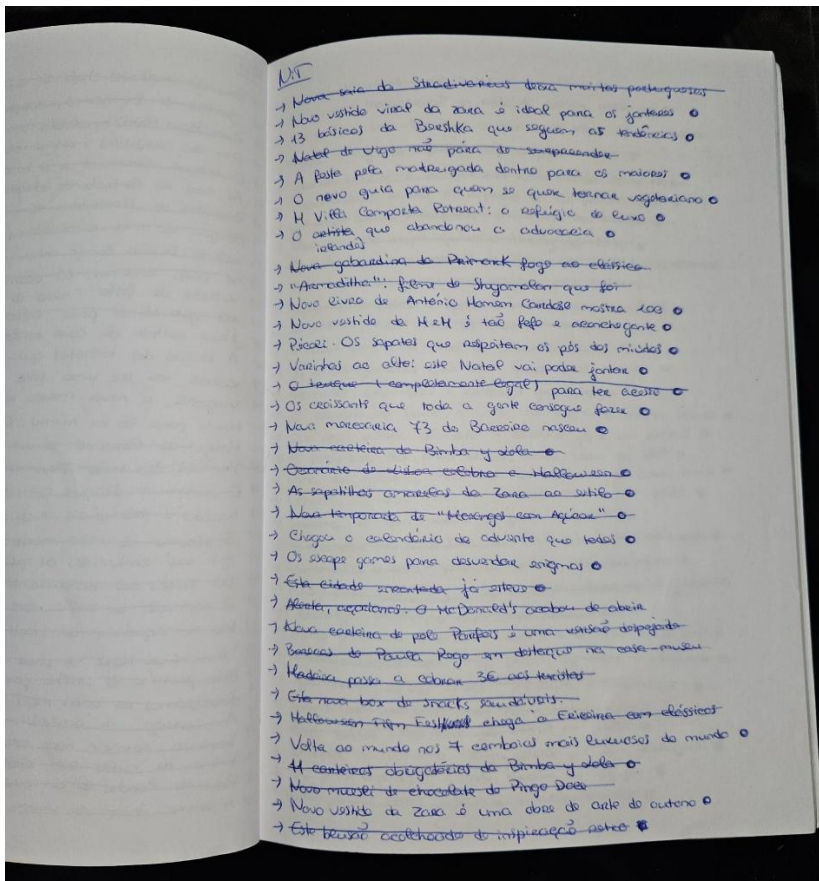 NiT
→ Nova saia da Stradivarius deixa muitas portuguesas
→ Novo vestido viral da Zara é ideal para os jantares
→ 13 básicos da Bershka que seguem as tendências
→ Natal de Vigo não pára de surpreender
→ A festa pela madrugada dentro para os maiores
→ O novo guia para quem se quer tornar vegetariano
→ M Villa Comporta Retreat: o refúgio de luxo
→ O artista que abandonou a advocacia
→ Nova gabardina da Primark foge ao clássico
→ "Armadilha": filme de Shyamalan que foi
→ Novo livro de António Homem Cardoso mostra 100
→ Novo vestido da H&M é tão fofo e aconchegante
→ Piccoli. Os sapatos que respeitam os pés dos miúdos
→ Varinhas ao alto: este Natal vai poder jantar
→ O truque (completamente legal) para ter acesso
→ Os croissants que toda a gente consegue fazer
→ Nova mercearia 73 do Barreiro nasceu
→ Nova carteira da Bimba y Lola
→ Oceanário de Lisboa celebra o Halloween
→ As sapatilhas amarelas da Zara ao estilo
→ Nova temporada de "Morangos com Açúcar"
→ Chegou o calendário do advento que todos
→ Os escape games para desvendar enigmas
→ Esta cidade encantada já esteve
→ Alerta, açorianos. O McDonald's acabou de abrir
→ Nova carteira de pelo Parfois é uma versão
→ Bonecos de Paula Rego em destaque na casa-museu
→ Madeira passa a cobrar 3€ aos turistas
→ Esta nova box de snacks saudáveis.
→ Halloween Film Festival chega à Ericeira com clássicos
→ Volta ao mundo nos 7 comboios mais luxuosos do mundo
→ 11 carteiras obrigatórias da Bimba y Lola
→ Novo muesli de chocolate do Pingo Doce
→ Novo vestido da Zara é uma obra de arte de outono
→ Este blusão acolchoado de inspiração